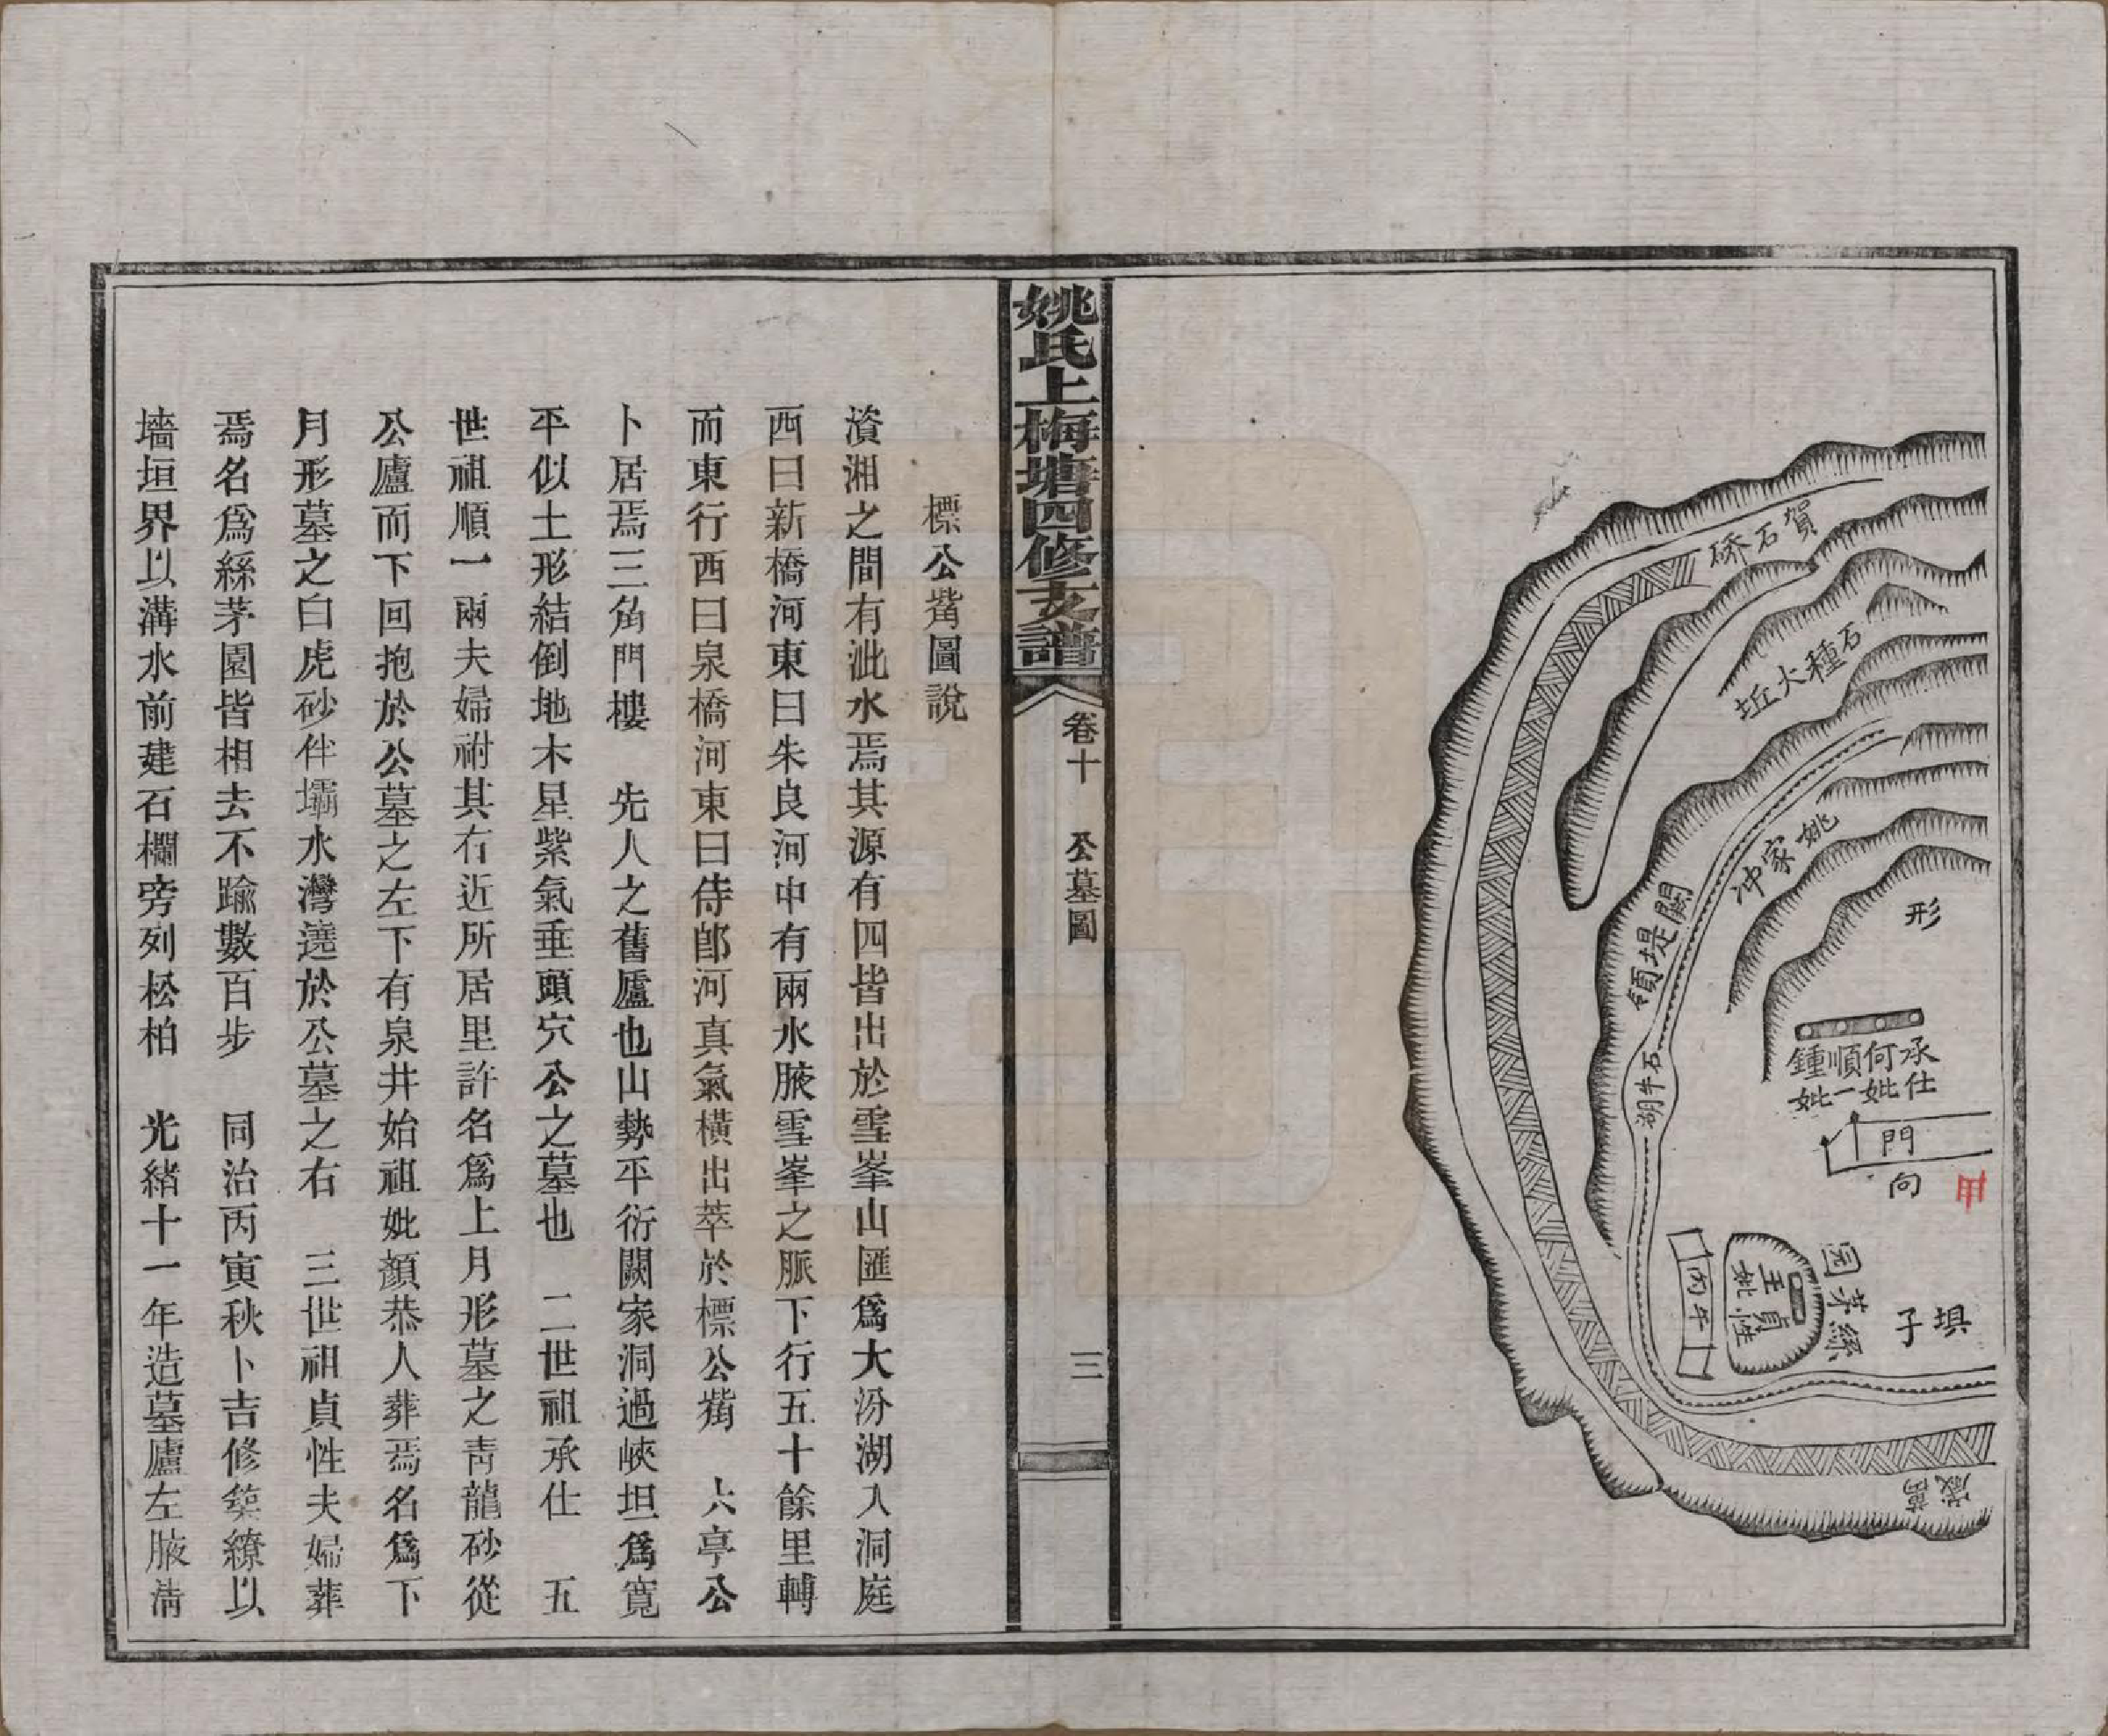 賀石硚
石種火坵
姚家冲
關堤領
石牛湖
形
承仕
何妣
順一
鍾妣
門
向
甲
絲茅园
貞性
王妣
丙午
垻子
萬歲
姚氏上梅塘四修支譜
卷十
公墓圖
三
標公觜圖說
資湘之間有泚水焉其源有四皆出於雪峯山匯爲大汾湖入洞庭
西曰新橋河東曰朱良河中有兩水腋雪峯之脈下行五十餘里轉
而東行西曰泉橋河東曰侍郎河真氣橫出萃於標公觜　六亭公
卜居焉三角門樓　先人之舊廬也山勢平衍闕家洞過峽坦爲寬
平似土形結倒地木星紫氣垂頭穴公之墓也　二世祖承仕　五
世祖順一兩夫婦祔其右近所居里許名爲上月形墓之靑龍砂從
公廬而下回抱於公墓之左下有泉井始祖妣顏恭人葬焉名爲下
月形墓之白虎砂伴壩水灣澆於公墓之右　三世祖貞性夫婦葬
焉名爲絲茅園皆相去不踰數百步　同治丙寅秋卜吉修築繚以
墻垣界以溝水前建石欄旁列松柏　光緒十一年造墓廬左腋淸